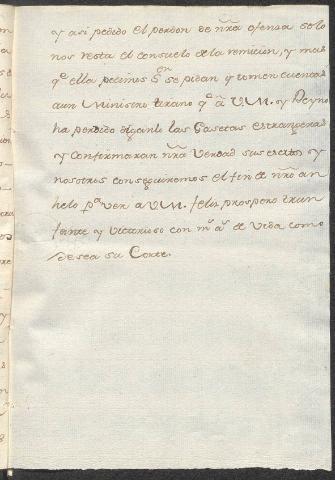 y asi pedido el perdon de nrã ofensa solo
nos resta el consuelo de la remicion, y mas
q.e ella pecimos Sn. se pidan y tomen cuentas
a un Ministro tirano q.e á V.M. y Reyno
ha perdido diganlo las Gasetas estrangeras
y confirmaran nrã verdad sus ecritos y
nosotros conseguiremos el fin de nrõ an
helo p.a ver a V.M. feliz, prospero triun
fante y victorioso con m.s a.s de vida como
desea su Corte.